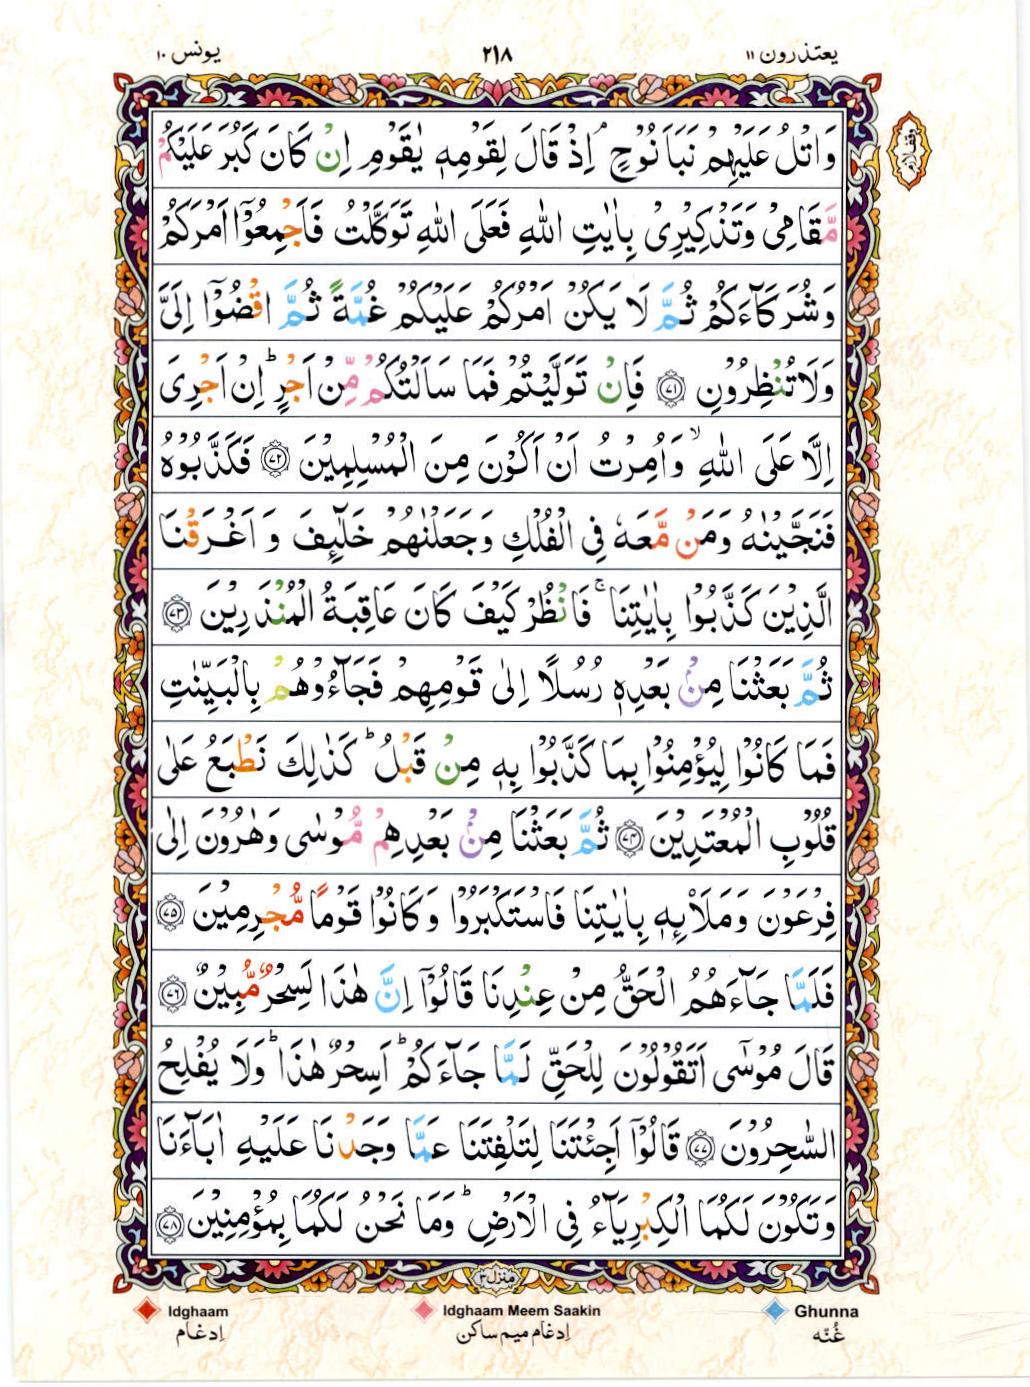 یعتذرون ۱۱
۲۱۸
یونس ۱۰
وقف لازم
وَاتْلُ عَلَيْهِمْ نَبَاَ نُوْحٍ ۘ اِذْ قَالَ لِقَوْمِهٖ يٰقَوْمِ اِنْ كَانَ كَبُرَ عَلَيْكُمْ
مَّقَامِيْ وَتَذْكِيْرِيْ بِاٰيٰتِ اللّٰهِ فَعَلَى اللّٰهِ تَوَكَّلْتُ فَاَجْمِعُوْٓا اَمْرَكُمْ
وَشُرَكَآءَكُمْ ثُمَّ لَا يَكُنْ اَمْرُكُمْ عَلَيْكُمْ غُمَّةً ثُمَّ اقْضُوْٓا اِلَيَّ
وَلَا تُنْظِرُوْنِ ﴿۷۱﴾ فَاِنْ تَوَلَّيْتُمْ فَمَا سَاَلْتُكُمْ مِّنْ اَجْرٍ ؕ اِنْ اَجْرِيَ
اِلَّا عَلَى اللّٰهِ ۙ وَاُمِرْتُ اَنْ اَكُوْنَ مِنَ الْمُسْلِمِيْنَ ﴿۷۲﴾ فَكَذَّبُوْهُ
فَنَجَّيْنٰهُ وَمَنْ مَّعَهٗ فِي الْفُلْكِ وَجَعَلْنٰهُمْ خَلٰٓئِفَ وَاَغْرَقْنَا
الَّذِيْنَ كَذَّبُوْا بِاٰيٰتِنَا ۚ فَانْظُرْ كَيْفَ كَانَ عَاقِبَةُ الْمُنْذَرِيْنَ ﴿۷۳﴾
ثُمَّ بَعَثْنَا مِنْۢ بَعْدِهٖ رُسُلًا اِلٰى قَوْمِهِمْ فَجَآءُوْهُمْ بِالْبَيِّنٰتِ
فَمَا كَانُوْا لِيُؤْمِنُوْا بِمَا كَذَّبُوْا بِهٖ مِنْ قَبْلُ ؕ كَذٰلِكَ نَطْبَعُ عَلٰى
قُلُوْبِ الْمُعْتَدِيْنَ ﴿۷۴﴾ ثُمَّ بَعَثْنَا مِنْۢ بَعْدِهِمْ مُّوْسٰى وَهٰرُوْنَ اِلٰى
فِرْعَوْنَ وَمَلَا۟ئِهٖ بِاٰيٰتِنَا فَاسْتَكْبَرُوْا وَكَانُوْا قَوْمًا مُّجْرِمِيْنَ ﴿۷۵﴾
فَلَمَّا جَآءَهُمُ الْحَقُّ مِنْ عِنْدِنَا قَالُوْٓا اِنَّ هٰذَا لَسِحْرٌ مُّبِيْنٌ ﴿۷۶﴾
قَالَ مُوْسٰٓى اَتَقُوْلُوْنَ لِلْحَقِّ لَمَّا جَآءَكُمْ ؕ اَسِحْرٌ هٰذَا ؕ وَلَا يُفْلِحُ
السّٰحِرُوْنَ ﴿۷۷﴾ قَالُوْٓا اَجِئْتَنَا لِتَلْفِتَنَا عَمَّا وَجَدْنَا عَلَيْهِ اٰبَآءَنَا
وَتَكُوْنَ لَكُمَا الْكِبْرِيَآءُ فِي الْاَرْضِ ؕ وَمَا نَحْنُ لَكُمَا بِمُؤْمِنِيْنَ ﴿۷۸﴾
منزل ۳
Idghaam Idghaam Meem Saakin Ghunna
اِدغام اِدغام میم ساکن غُنّه